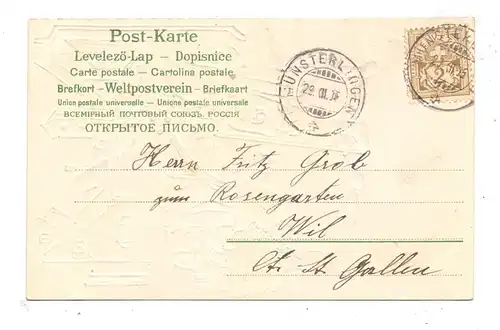 Post-Karte
Levelező-Lap — Dopisnice
Carte postale — Cartolina postale
Brefkort — Weltpostverein — Briefkaart
Union postale universelle — Unione postale universale
ВСЕМІРНЫЙ ПОЧТОВЫЙ СОЮЗЪ. РОССІЯ
ОТКРЫТОЕ ПИСЬМО.
MÜNSTERLINGEN
29. III.
Herrn Fritz Grob
zum Rosengarten
Wil
Ct. St. Gallen